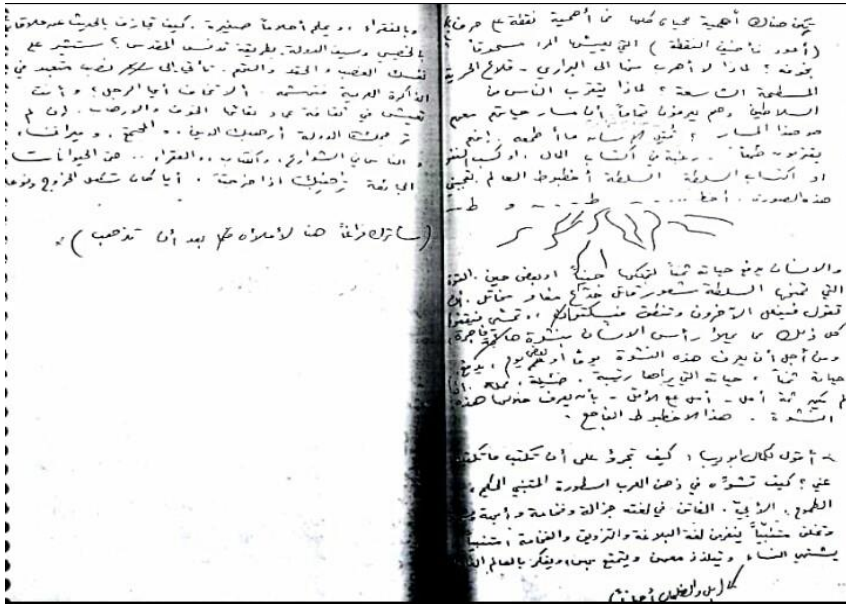 يكن هناك أهمية لحياتي كلها فما أهمية نقطة على حرف
(أعود فأعني النقطة) التي يعيشها المرء مسحوراً
بخوفه؟ لماذا لا أهرب منها الى البراري - قلاع الحرية
المسطحة الشاسعة؟ لماذا يقترب الناس من
السلاطين وهم يعرفون تماماً أن مسار حياتهم معهم
هو هذا المسار؟ الإنسان ما أطمعه. إنهم
يقتربون طمعاً.. رغبة في اكتساب المال، او كسب النفوذ
او اكتساب السلطة. السلطة أخطبوط العالم
هذه الصورة. أخطـ..... ـطـ.... و ط..
والانسان يدفع حياته ثمناً لتملكها حيناً او بعض حين. القوة
التي تمنحها السلطة شعور قاتل خدّاع مخاتل. أن
تقول فيفعل الآخرون وتنطق فيسكتون.. تمشي فيقفوا
كل ذلك مما يملأ رأس الانسان بنشوة فاجرة،
ومن أجل أن يعرف هذه النشوة يوماً أو بعض يوم، يدفع
حياته ثمناً، حياته التي يراها رتيبة، ضئيلة، مملة، إن
لم يكن ثمة أمل - أمل مع الأفق - بأنه يعرف خلالها هذه
النشوة. هذا الاخطبوط الفاجع.
أقول لكمال ابو ديب: كيف تجرؤ على أن تكتب ما تكتبه
عني؟ كيف تشوّه في ذهن العرب اسطورة المتنبي الحكيم،
الطموح، الأبيّ، الفاتن في لغته جزالة وفخامة وأبهة
وتخلق متنبّياً ينفر من لغة البلاغة والتزويق والفخامة، متنبياً
يشتهي النساء ويتلذذ معهن ويتمتع بهن، ويفكر بالعالم
وبالفقراء، ويحلم أحلاماً صغيرة. كيف تجازف بالحديث عن علاقاتي
بالخصي وسيف الدولة بطريقة تدنس المقدس؟ ستثير على
نفسك الغضب والحقد والنقم. تأتي إلى نصب متعبد في
الذاكرة العربية فتهشمه. ألا تخاف أيها الرجل؟ وأنت
تعيش في ثقافة عمادها الخوف والارهاب. إن لم
ترهبك الدولة أرهبك الدين.. المجتمع.. و
الناس في الشوارع، والكتاب.. والفقراء.. حتى الحيوانات
الجائعة ترهبك اذا خرجت. أيا كان شكل الخروج ونوعه
(سأترك فراغاً هنا لأملأه بعد أن تذهب).